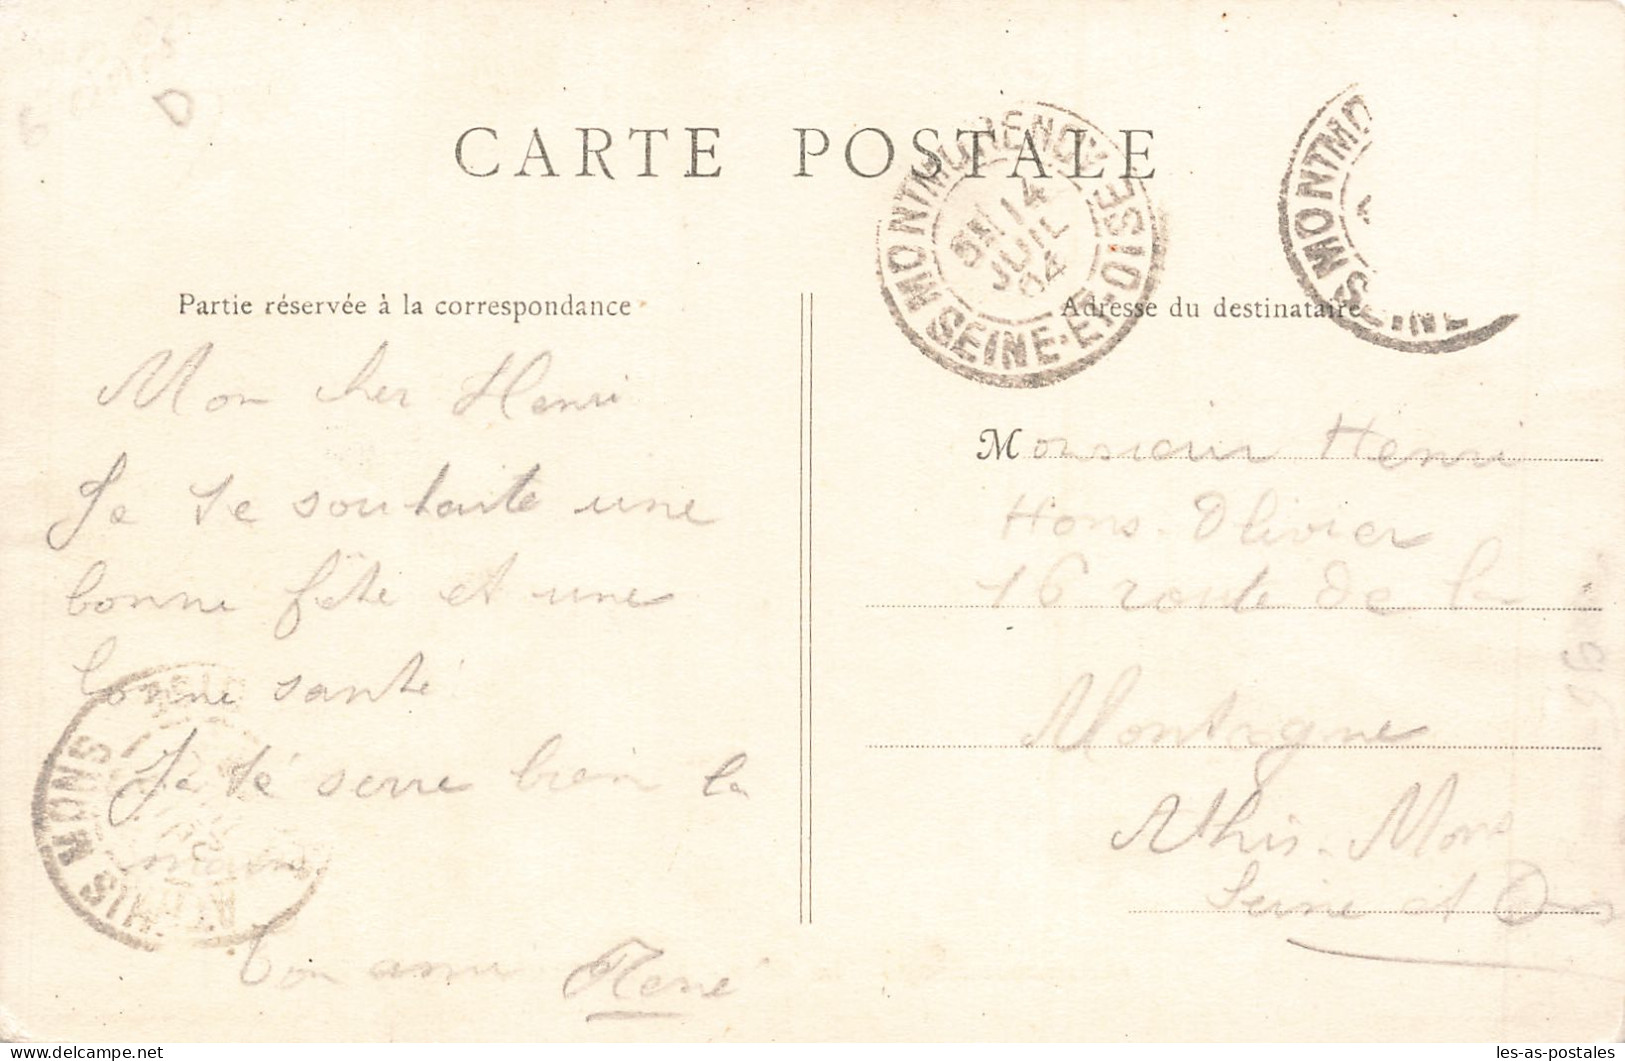 CARTE POSTALE
MONTMORENCY
14
JUIL
04
SEINE-ET-OISE
MONTMO
SEINE
Partie réservée à la correspondance
Adresse du destinataire
Mon cher Henri
Je te souhaite une
bonne fête et une
bonne santé
Je té serre bien la
main
ton ami René
ATHIS MONS
Monsieur Henri
Olivier
16 route de la
Montagne
Athis-Mons
Seine et Oise
96
les-as-postales